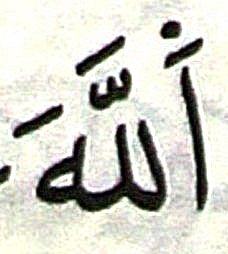 اَ۬للَّهَ